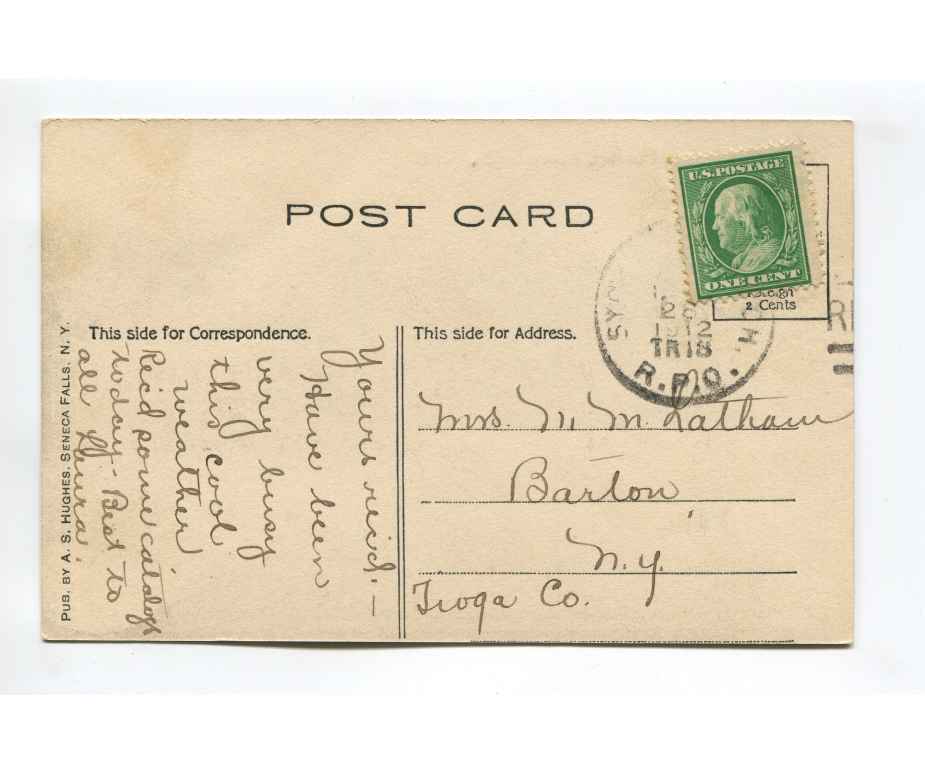 POST CARD
U.S. POSTAGE
ONE CENT
2 Cents
This side for Correspondence.
This side for Address.
SY
1912
TR18
R.P.O.
Yours rec'd. —
Have been
very busy
this cool
weather
Rec'd some catalogs
today - Best to
all
Mrs. N. M. Latham
Barton
N.Y.
Tioga Co.
PUB. BY A. S. HUGHES. SENECA FALLS. N. Y.